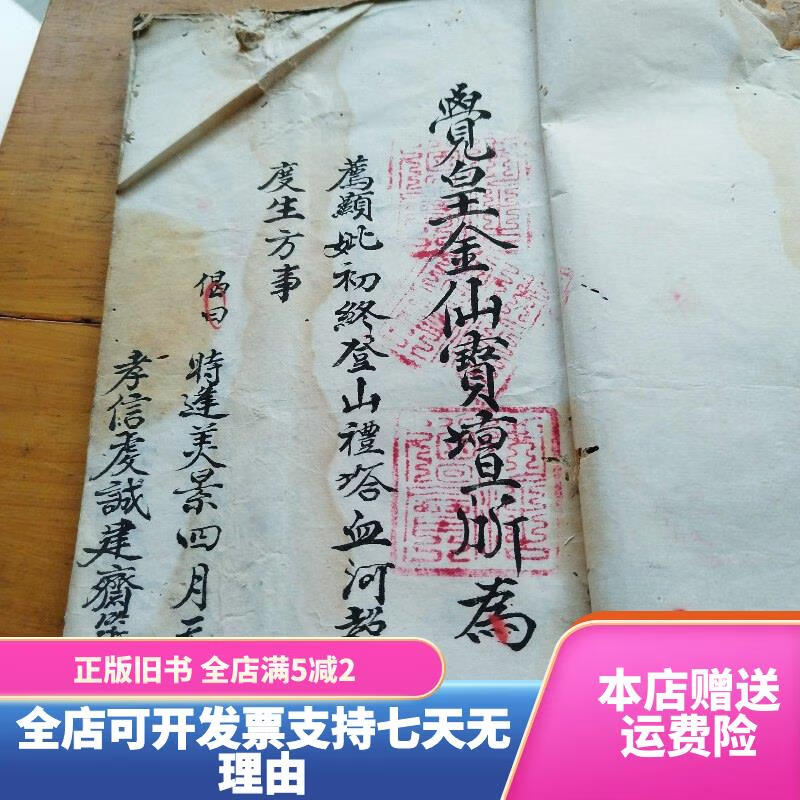 覺皇金仙寶壇所為
薦顯妣初終登山禮塔血河
度生方事
偈曰
時逢美景四月
孝信虔誠建齋
正版旧书 全店满5减2
全店可开发票支持七天无
理由
本店赠送
运费险